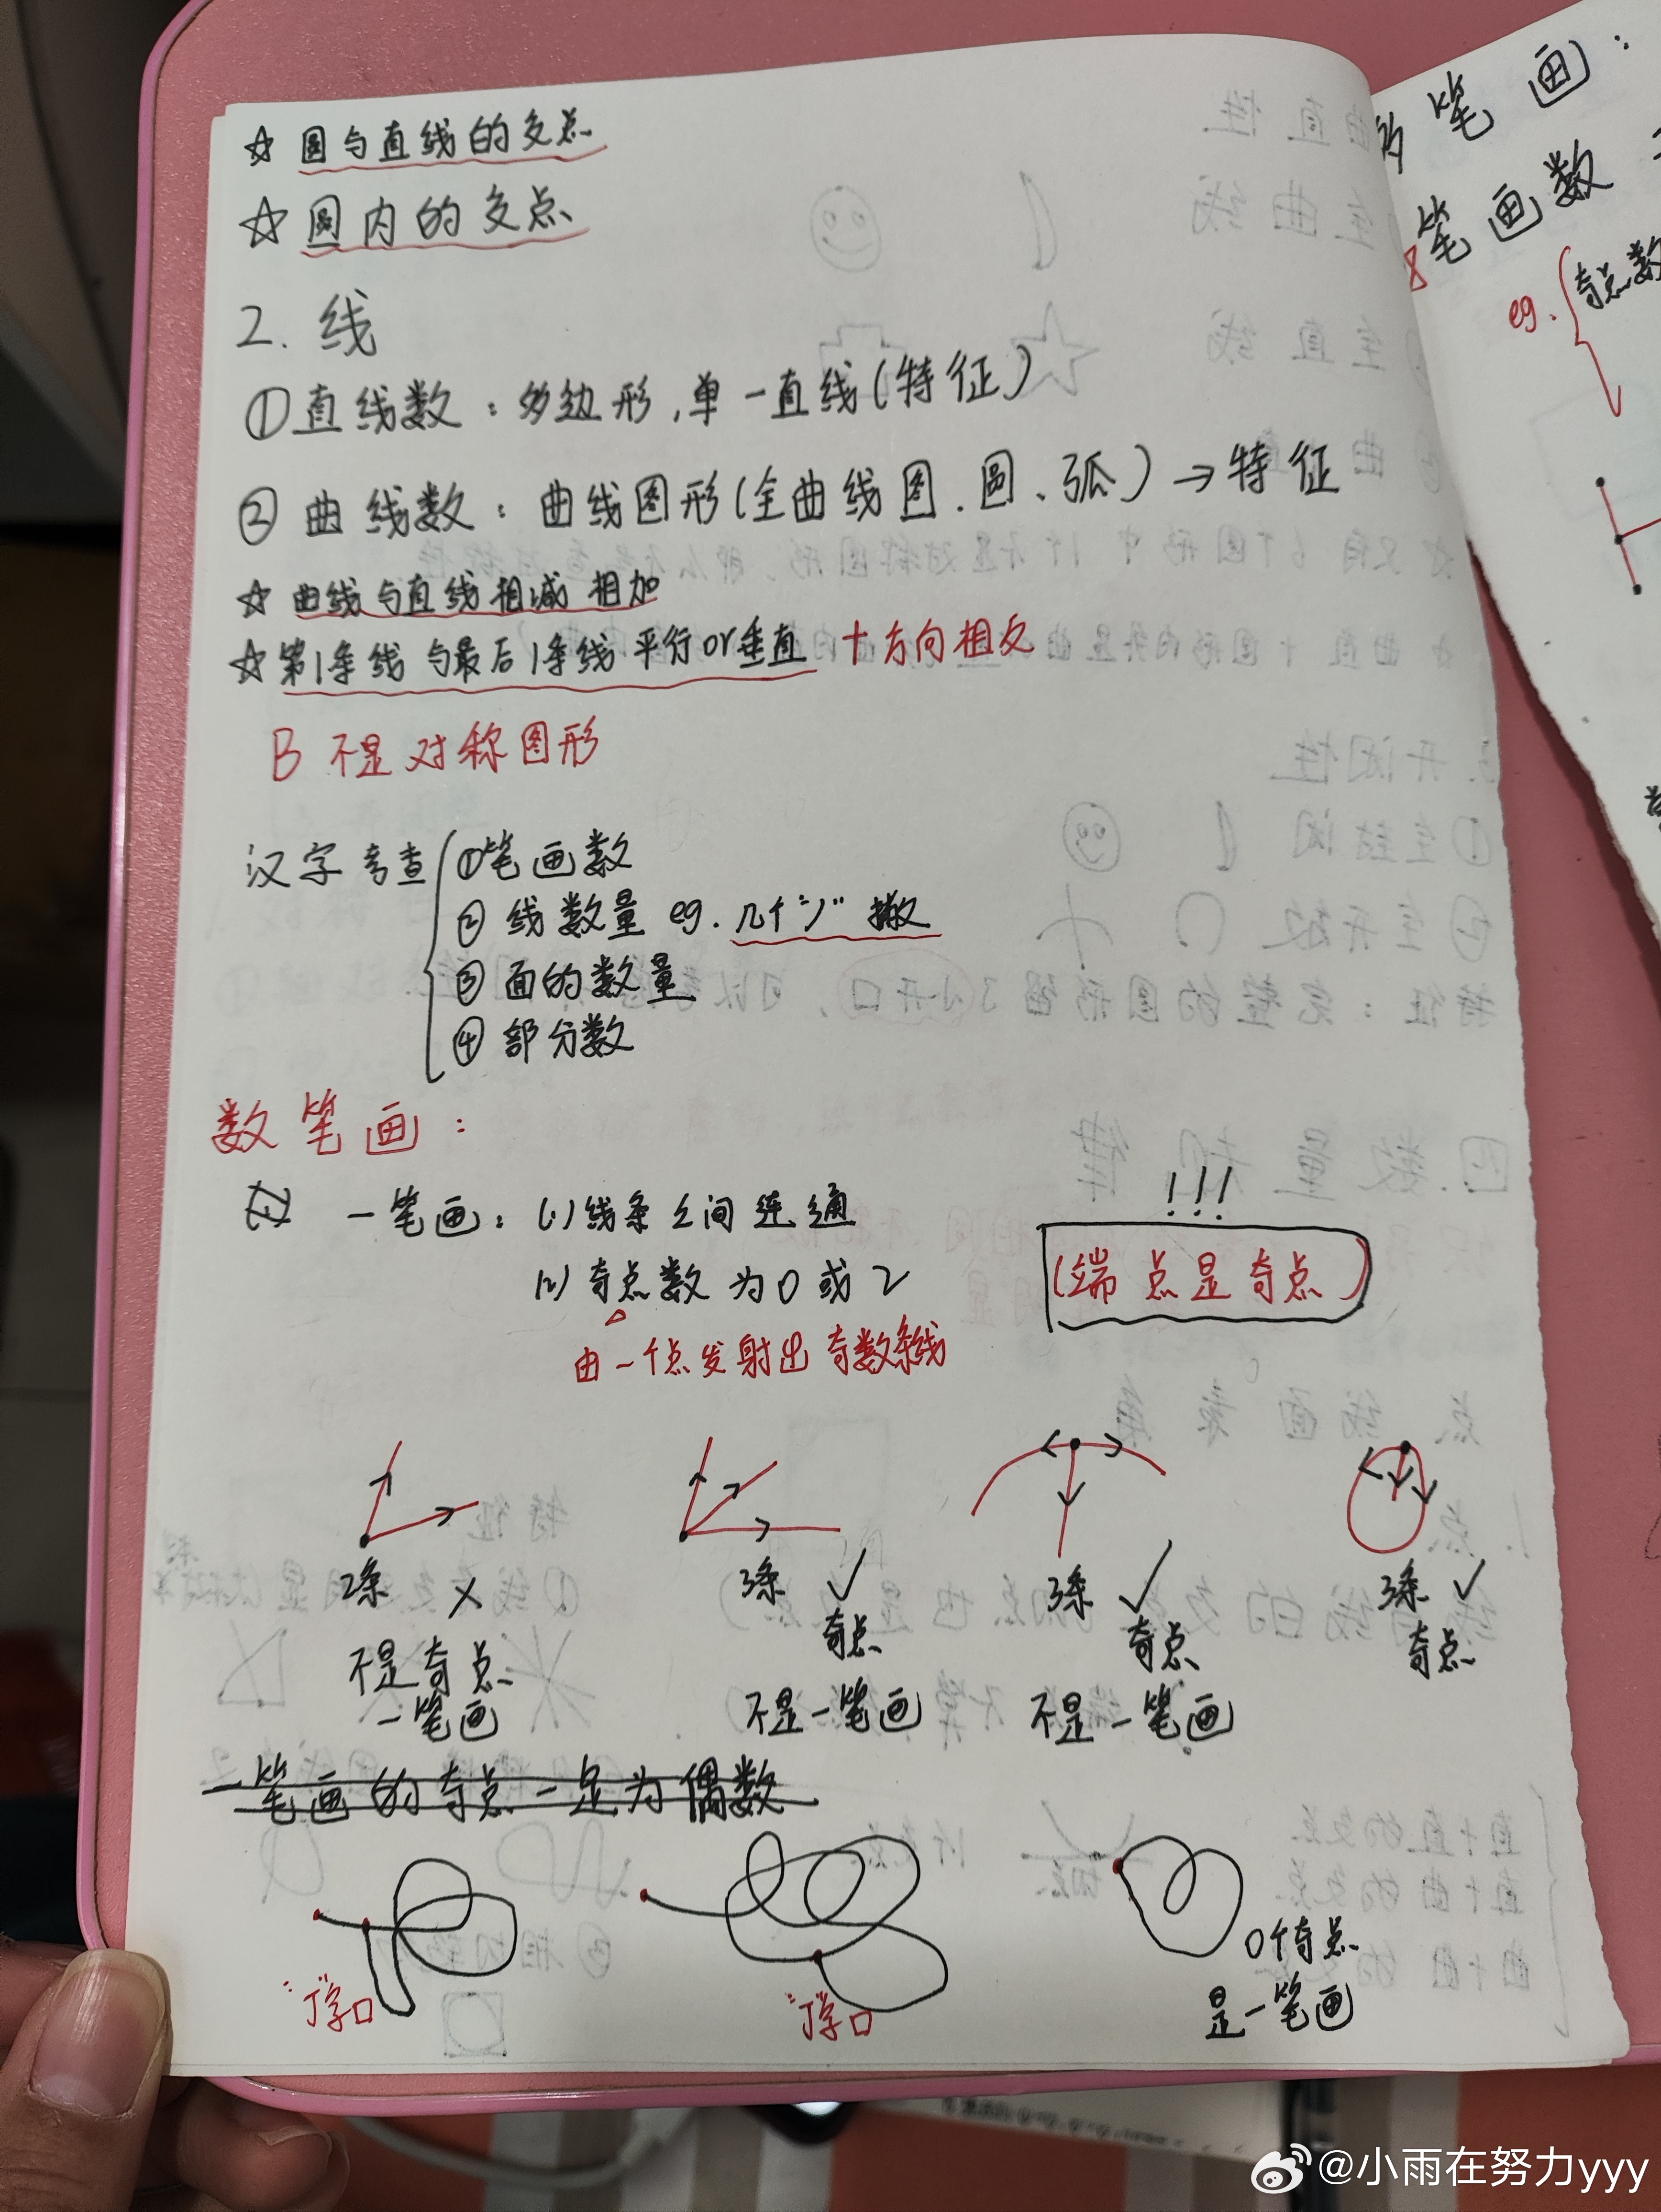 ☆ 圆与直线的交点
☆ 圆内的交点
2. 线
①直线数：多边形，单一直线(特征)
② 曲线数：曲线图形(全曲线图、圆、弧)→特征
☆ 曲线与直线相减 相加
☆ 第1条线与最后1条线 平行or垂直 + 方向相反
B 不是对称图形
汉字考查 ①笔画数
② 线数量 eg. 几个"丿" 撇
③ 面的数量
④ 部分数
数笔画：
一笔画：(1)线条之间连通
(2)奇点数为0或2
由一个点发射出奇数条线
!!!
(端点是奇点)
2条 ×
不是奇点
一笔画
3条 ✓
奇点
不是一笔画
3条 ✓
奇点
不是一笔画
3条 ✓
奇点
一笔画的奇点一定为偶数
"丁"字口
"丁"字口
0个奇点
是一笔画
笔画：
笔画数
eg. 奇点数
@小雨在努力yyy